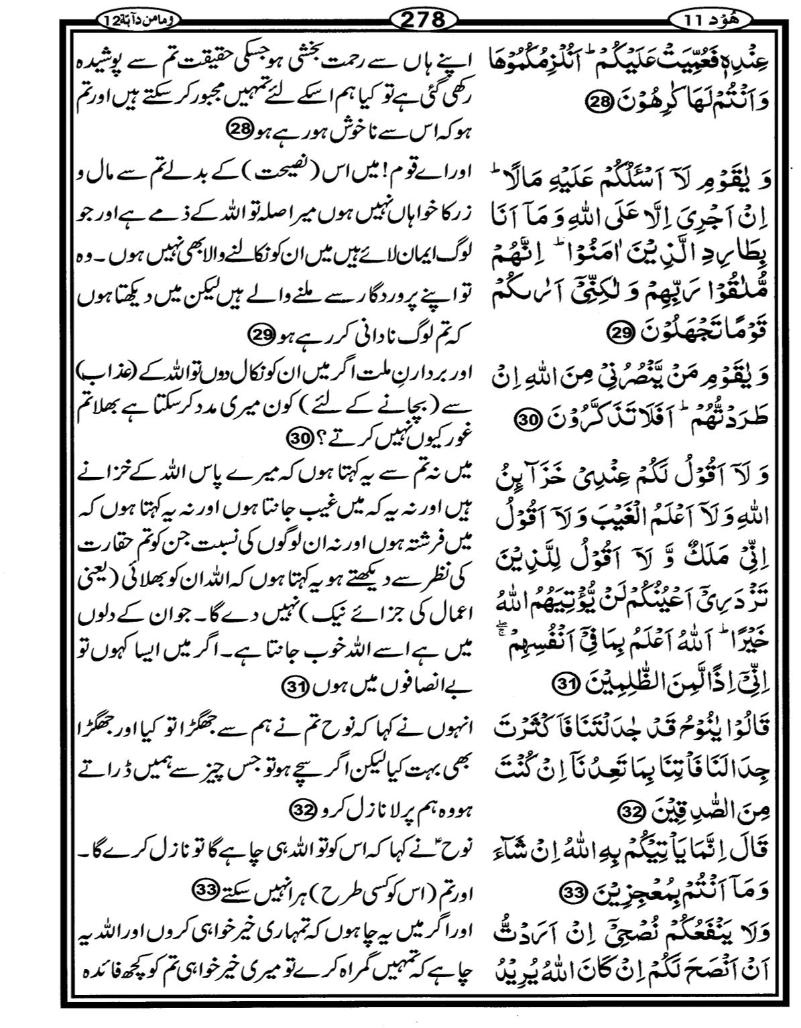 وما من دآبة 12
278
هُوْد 11
عِنْدِهٖ فَعُمِّيَتْ عَلَيْكُمْ ؕ اَنُلْزِمُكُمُوْهَا
وَ اَنْتُمْ لَهَا كٰرِهُوْنَ ﴿28﴾
وَ يٰقَوْمِ لَاۤ اَسْـَٔلُكُمْ عَلَيْهِ مَالًا ؕ
اِنْ اَجْرِيَ اِلَّا عَلَى اللّٰهِ وَ مَاۤ اَنَا
بِطَارِدِ الَّذِيْنَ اٰمَنُوْا ؕ اِنَّهُمْ
مُّلٰقُوْا رَبِّهِمْ وَ لٰكِنِّيْۤ اَرٰىكُمْ
قَوْمًا تَجْهَلُوْنَ ﴿29﴾
وَ يٰقَوْمِ مَنْ يَّنْصُرُنِيْ مِنَ اللّٰهِ اِنْ
طَرَدْتُّهُمْ ؕ اَفَلَا تَذَكَّرُوْنَ ﴿30﴾
وَ لَاۤ اَقُوْلُ لَكُمْ عِنْدِيْ خَزَآىِٕنُ
اللّٰهِ وَ لَاۤ اَعْلَمُ الْغَيْبَ وَ لَاۤ اَقُوْلُ
اِنِّيْ مَلَكٌ وَّ لَاۤ اَقُوْلُ لِلَّذِيْنَ
تَزْدَرِيْۤ اَعْيُنُكُمْ لَنْ يُّؤْتِيَهُمُ اللّٰهُ
خَيْرًا ؕ اَللّٰهُ اَعْلَمُ بِمَا فِيْۤ اَنْفُسِهِمْ ۖۚ
اِنِّيْۤ اِذًا لَّمِنَ الظّٰلِمِيْنَ ﴿31﴾
قَالُوْا يٰنُوْحُ قَدْ جٰدَلْتَنَا فَاَكْثَرْتَ
جِدَالَنَا فَاْتِنَا بِمَا تَعِدُنَاۤ اِنْ كُنْتَ
مِنَ الصّٰدِقِيْنَ ﴿32﴾
قَالَ اِنَّمَا يَاْتِيْكُمْ بِهِ اللّٰهُ اِنْ شَآءَ
وَ مَاۤ اَنْتُمْ بِمُعْجِزِيْنَ ﴿33﴾
وَلَا يَنْفَعُكُمْ نُصْحِيْۤ اِنْ اَرَدْتُّ
اَنْ اَنْصَحَ لَكُمْ اِنْ كَانَ اللّٰهُ يُرِيْدُ
اپنے ہاں سے رحمت بخشی ہو جسکی حقیقت تم سے پوشیدہ
رکھی گئی ہے تو کیا ہم اسکے لئے تمہیں مجبور کر سکتے ہیں اور تم
ہو کہ اس سے ناخوش ہو رہے ہو ﴿28﴾
اور اے قوم! میں اس (نصیحت) کے بدلے تم سے مال و
زر کا خواہاں نہیں ہوں میرا صلہ تو اللہ کے ذمے ہے اور جو
لوگ ایمان لائے ہیں میں ان کو نکالنے والا بھی نہیں ہوں۔ وہ
تو اپنے پروردگار سے ملنے والے ہیں لیکن میں دیکھتا ہوں
کہ تم لوگ نادانی کر رہے ہو ﴿29﴾
اور بردارنِ ملت اگر میں ان کو نکال دوں تو اللہ کے (عذاب)
سے (بچانے کے لئے) کون میری مدد کر سکتا ہے بھلا تم
غور کیوں نہیں کرتے؟ ﴿30﴾
میں نہ تم سے یہ کہتا ہوں کہ میرے پاس اللہ کے خزانے
ہیں اور نہ یہ کہ میں غیب جانتا ہوں اور نہ یہ کہتا ہوں کہ
میں فرشتہ ہوں اور نہ ان لوگوں کی نسبت جن کو تم حقارت
کی نظر سے دیکھتے ہو یہ کہتا ہوں کہ اللہ ان کو بھلائی (یعنی
اعمال کی جزائے نیک) نہیں دے گا۔ جو ان کے دلوں
میں ہے اسے اللہ خوب جانتا ہے۔ اگر میں ایسا کہوں تو
بے انصافوں میں ہوں ﴿31﴾
انہوں نے کہا کہ نوح تم نے ہم سے جھگڑا تو کیا اور جھگڑا
بھی بہت کیا لیکن اگر سچے ہو تو جس چیز سے ہمیں ڈراتے
ہو وہ ہم پر لا نازل کرو ﴿32﴾
نوحؑ نے کہا کہ اس کو تو اللہ ہی چاہے گا تو نازل کرے گا۔
اور تم (اس کو کسی طرح) ہرا نہیں سکتے ﴿33﴾
اور اگر میں یہ چاہوں کہ تمہاری خیر خواہی کروں اور اللہ یہ
چاہے کہ تمہیں گمراہ کرے تو میری خیر خواہی تم کو کچھ فائدہ